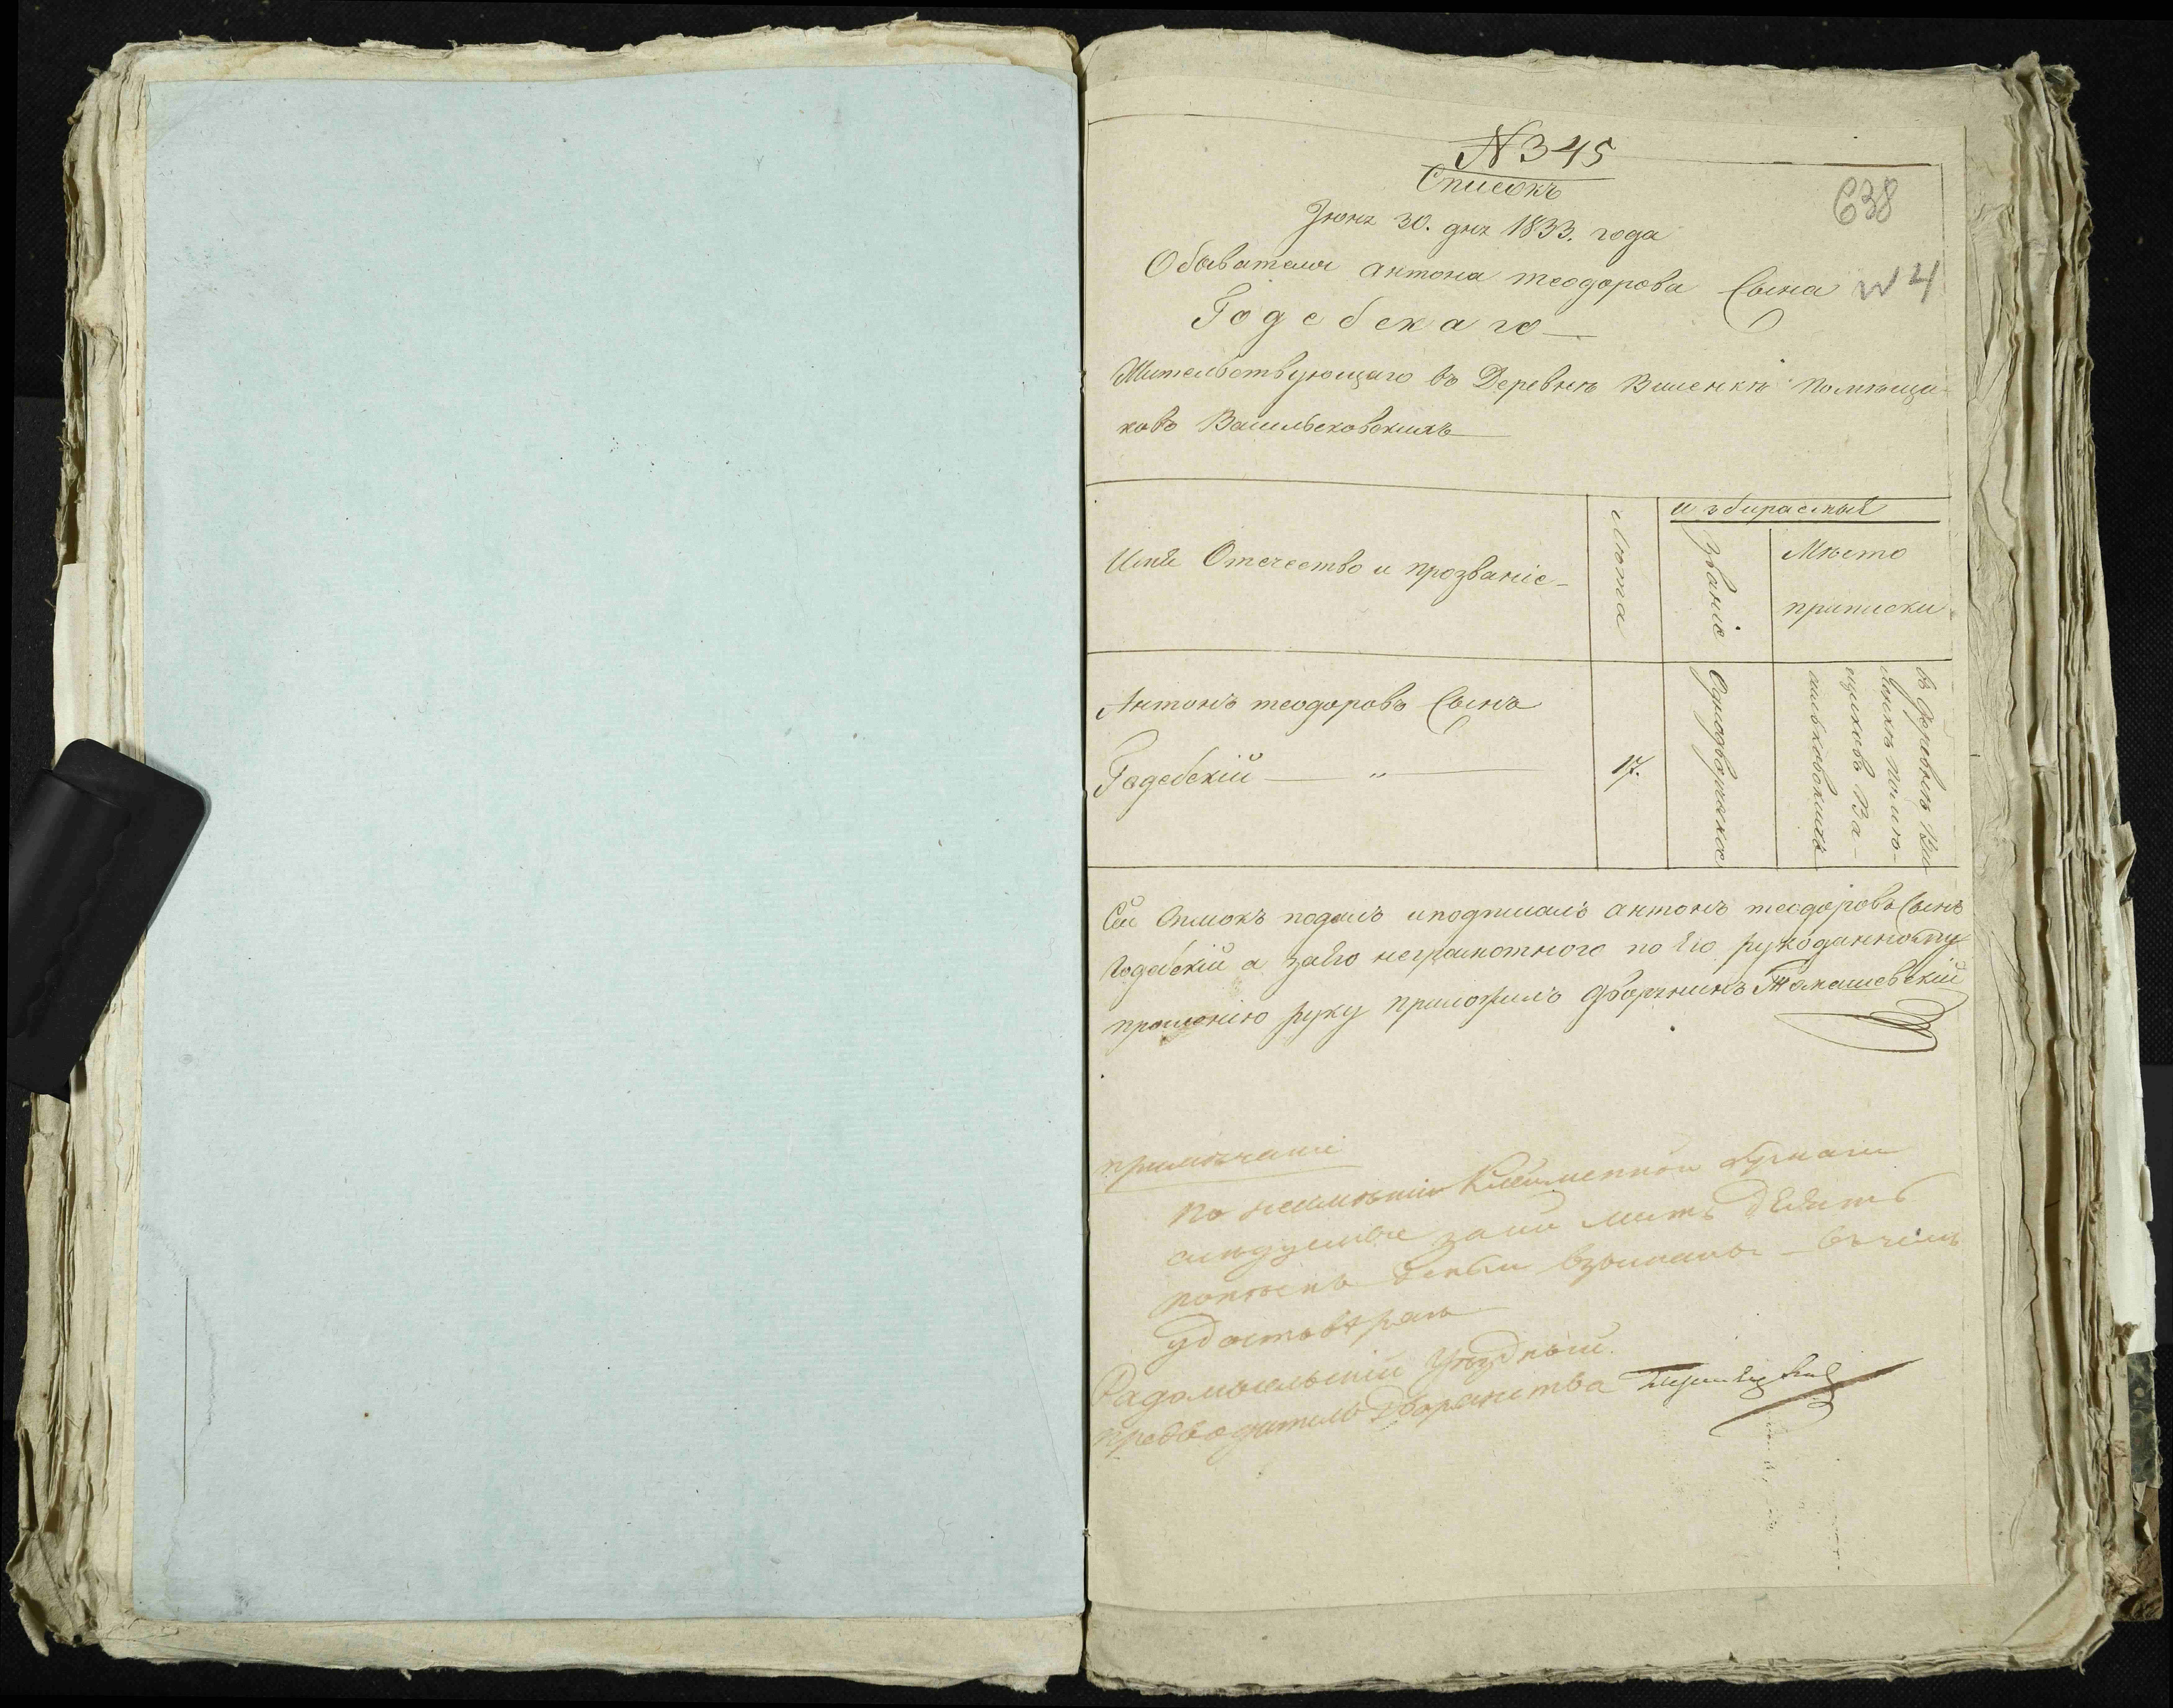 N 345
Списокъ
638
Іюня 30. дня 1833. года
Обывателя антона теодорова Сына
N 4
Годебскаго
Жительствующаго въ Деревнѣ Вышенкѣ Помѣщи-
ковъ Васильковскихъ
Имя Отечество и прозваніе
Лѣта
избираемыя
званіе
Мѣсто
приписки
Антонъ теодоровъ Сынъ
Годебскій — " —
17.
Однодворческое
въ Деревнѣ Вы-
шенкѣ Помѣ-
щиковъ Ва-
сильковскихъ
Сей Списокъ подалъ иподписалъ антонъ теодоровъ Сынъ
Годебскій а заего неграмотного по Его рукоданному
прошенію руку приложилъ дворянинъ Томашевскій
примѣчаніе
по неимѣнію Клейменной бумаги
слѣдуемые за листъ Девять
копѣекъ взысканы — въ чемъ
удостовѣряю
Радомысльскій Уѣздный
предводитель Дворянства